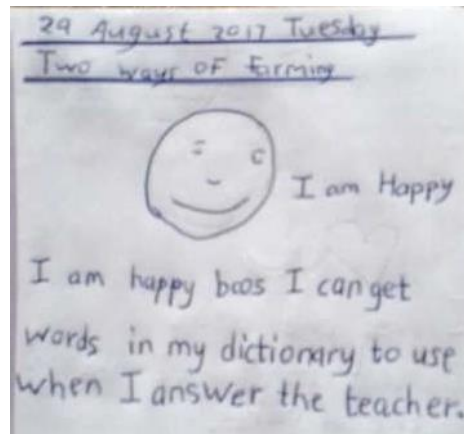 29 August 2017 Tuesday
Two ways of Farming
I am Happy
I am happy bcos I can get
words in my dictionary to use
when I answer the teacher.